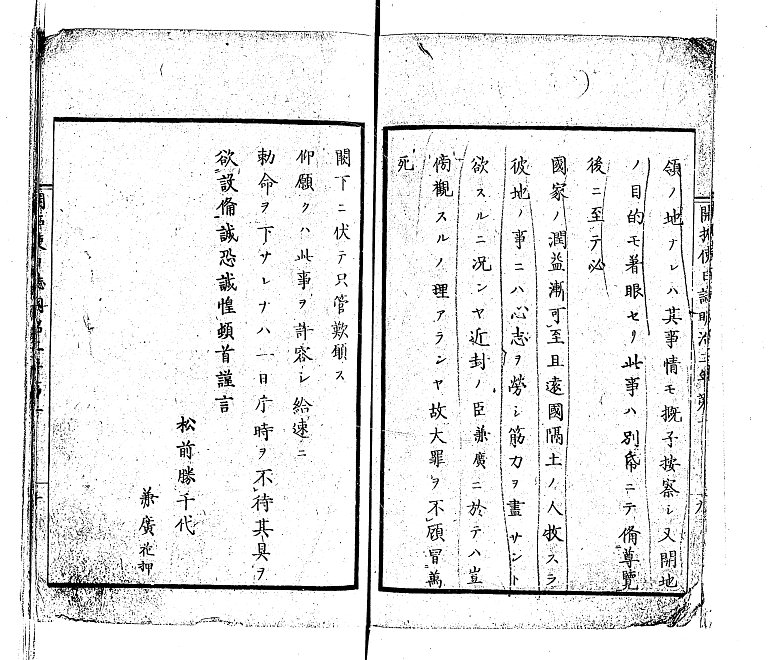 領ノ地ナレハ其事情モ概子按察シ又開地
ノ目的モ著眼セリ此事ハ別帋ニテ備尊覽
後ニ至テ必
國家ノ潤益漸可至且遠國隔土ノ人牧スラ
彼地ノ事ニハ心志ヲ勞シ筋力ヲ盡サント
欲スルニ况ンヤ近封ノ臣兼廣ニ於テハ豈
傍觀スルノ理アランヤ故大罪ヲ不顧冒萬
死
闕下ニ伏テ只管歎願ス
仰願クハ此事ヲ許容シ給速ニ
勅命ヲ下サレナハ一日片時ヲ不待其具ヲ
欲設備誠恐誠惶頓首謹言
松前勝千代
兼廣花押